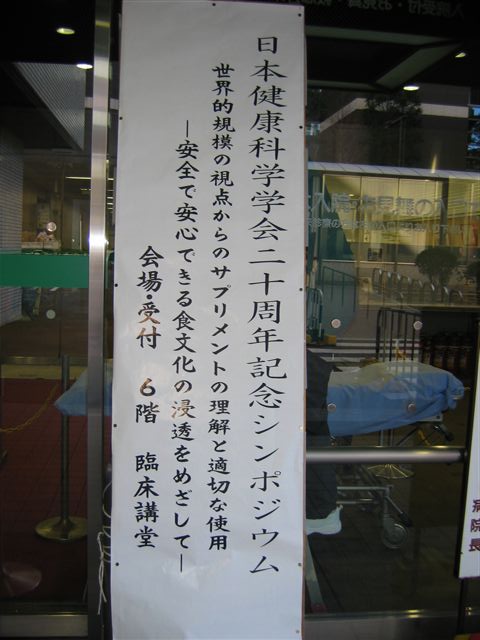 日本健康科学学会二十周年記念シンポジウム
世界的規模の視点からのサプリメントの理解と適切な使用
―安全で安心できる食文化の浸透をめざして―
会場・受付 6階 臨床講堂
病院長